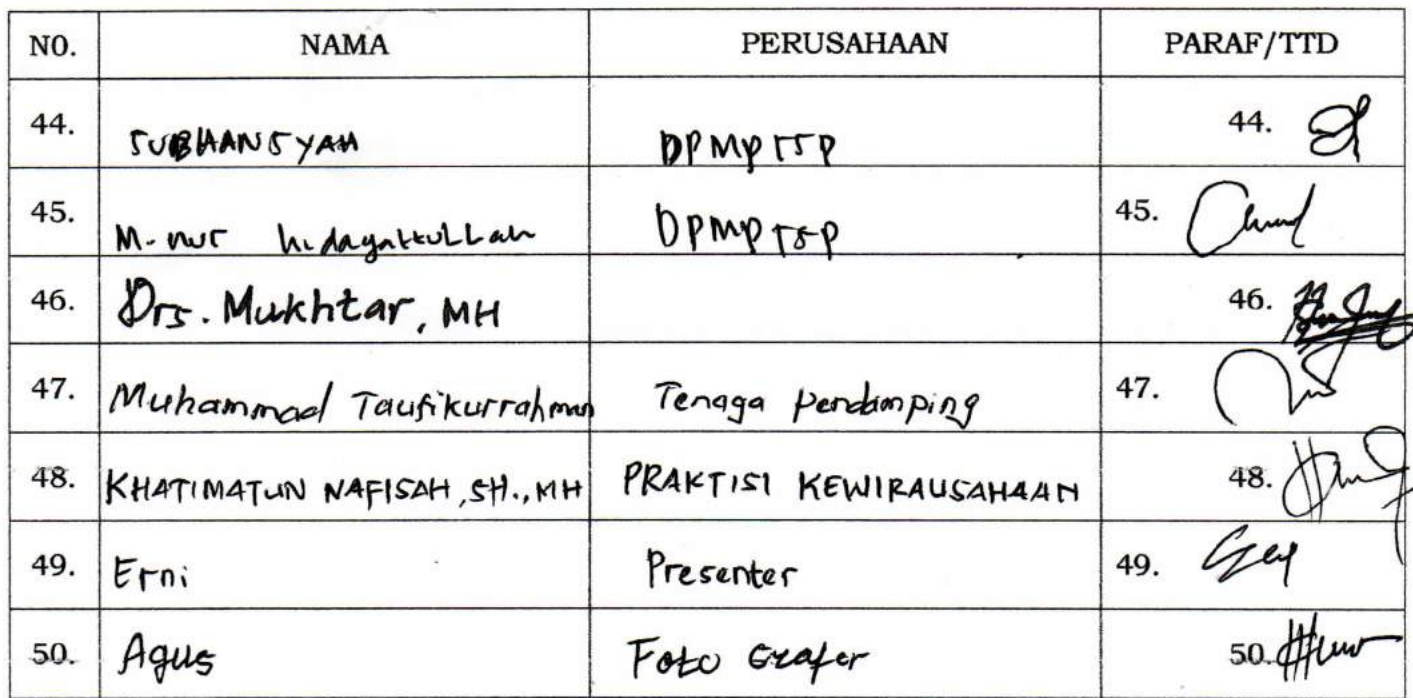 NO. NAMA PERUSAHAAN PARAF/TTD
44. SUBHANSYAH DPMPTSP 44.
45. M. nur hidayattullah DPMPTSP 45.
46. Drs. Mukhtar, MH 46.
47. Muhammad Taufikurrahman Tenaga Pendamping 47.
48. KHATIMATUN NAFISAH, SH., MH PRAKTISI KEWIRAUSAHAAN 48.
49. Erni Presenter 49.
50. Agus Foto Grafer 50.